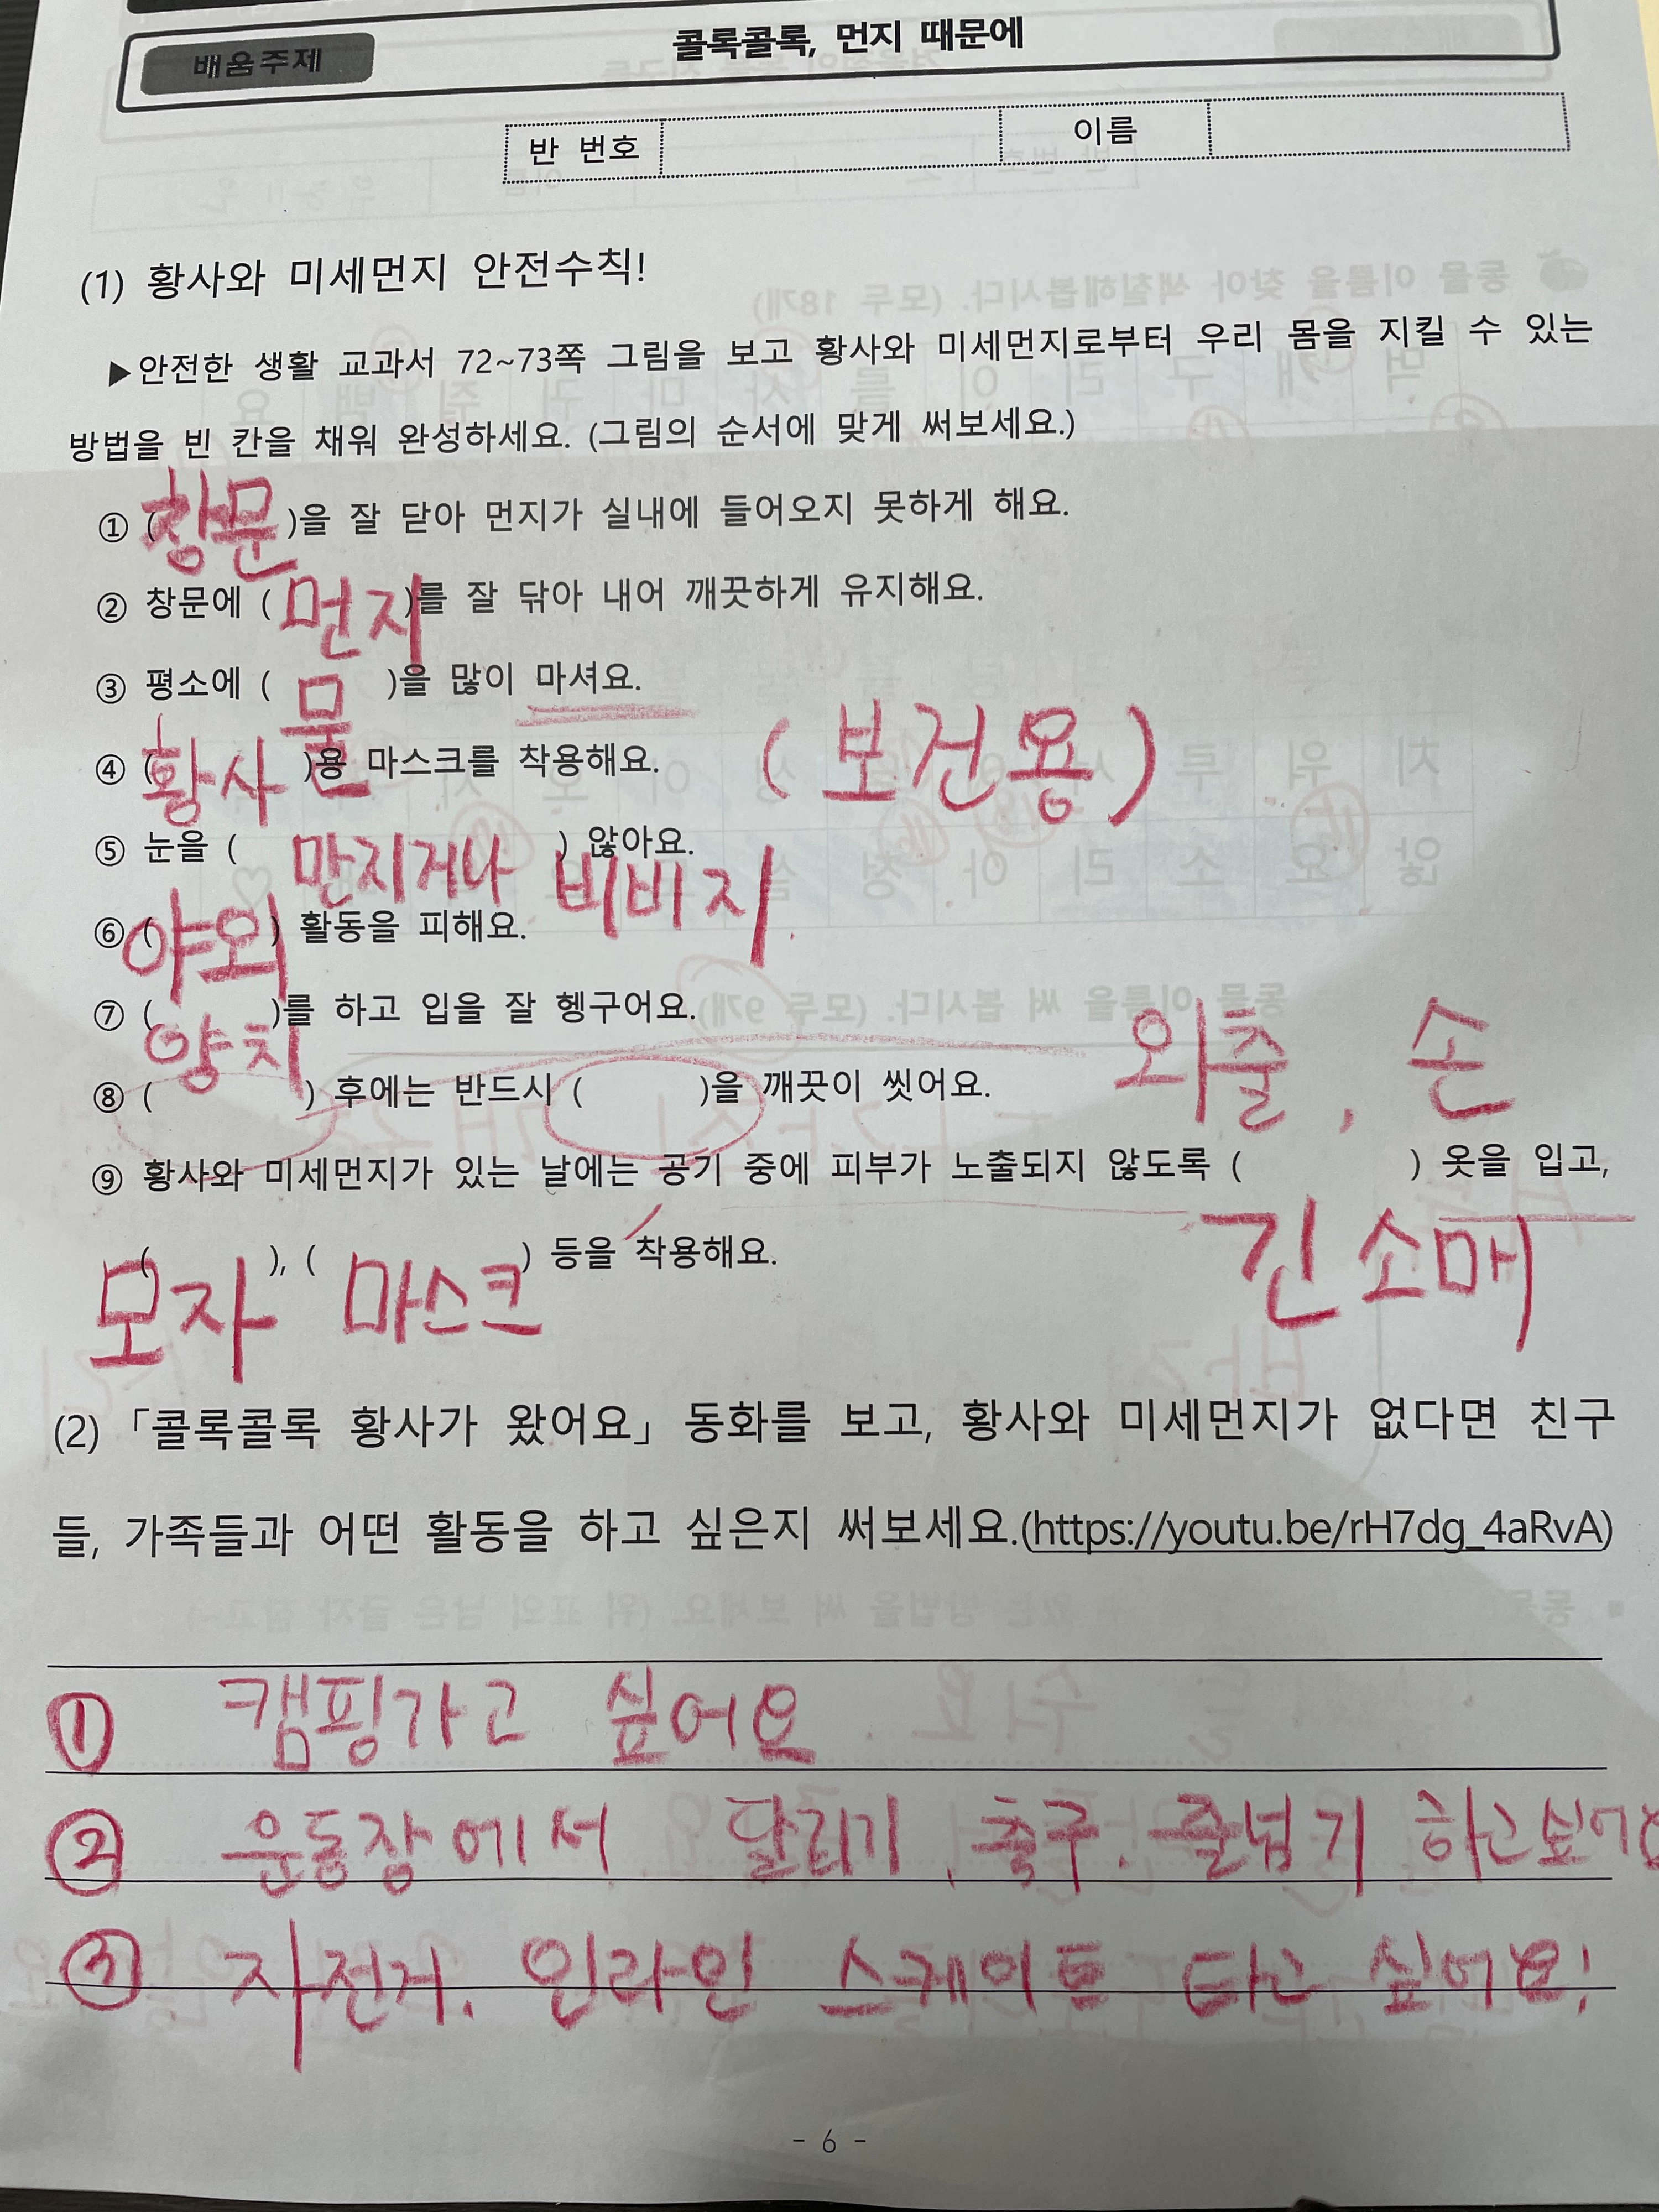 배움주제 콜록콜록, 먼지 때문에
반 번호 이름
(1) 황사와 미세먼지 안전수칙!
▶안전한 생활 교과서 72~73쪽 그림을 보고 황사와 미세먼지로부터 우리 몸을 지킬 수 있는
방법을 빈 칸을 채워 완성하세요. (그림의 순서에 맞게 써보세요.)
① (창문)을 잘 닫아 먼지가 실내에 들어오지 못하게 해요.
② 창문에 (먼지)를 잘 닦아 내어 깨끗하게 유지해요.
③ 평소에 (물)을 많이 마셔요.
④ (황사)용 마스크를 착용해요. (보건용)
⑤ 눈을 (만지거나 비비지) 않아요.
⑥ (야외) 활동을 피해요.
⑦ (양치)를 하고 입을 잘 헹구어요.
⑧ ( ) 후에는 반드시 ( )을 깨끗이 씻어요. 외출, 손
⑨ 황사와 미세먼지가 있는 날에는 공기 중에 피부가 노출되지 않도록 (긴소매) 옷을 입고,
(모자), (마스크) 등을 착용해요.
(2) 「콜록콜록 황사가 왔어요」 동화를 보고, 황사와 미세먼지가 없다면 친구
들, 가족들과 어떤 활동을 하고 싶은지 써보세요.(https://youtu.be/rH7dg_4aRvA)
① 캠핑가고 싶어요.
② 운동장에서 달리기, 축구, 줄넘기 하고싶어요
③ 자전거, 인라인 스케이트 타고 싶어요!
- 6 -